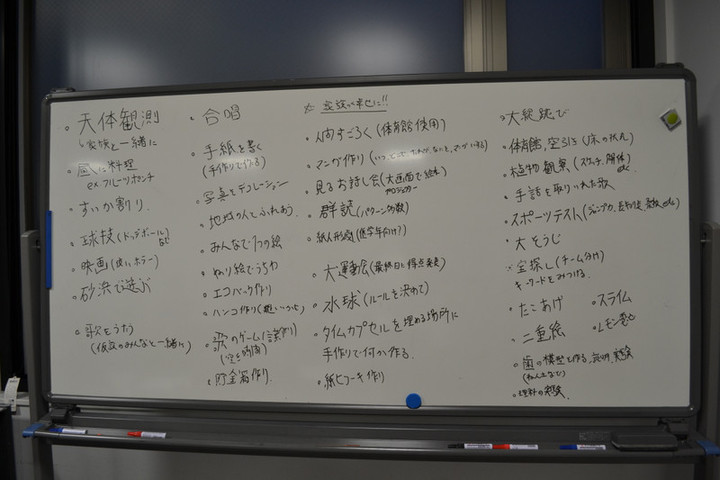 ・天体観測
↳家族と一緒に
・昼に料理
ex フルーツポンチ
・すいか割り
・球技(ドッジボール)など
・映画(使いホラー)
・砂浜で遊ぶ
・歌をうたう
(仮設のみんなと一緒に)
・合唱
・手紙を書く
(手作りで作る)
・写真をデコレーション
・地域の人とふれあう
・みんなで1つの絵
・ぬり絵でうちわ
・エコバック作り
・ハンコ作り
・歌のゲーム
(空き時間)
・貯金箱作り
・人間すごろく(体育館使用)
・マンガ作り
・見るお話し会(大画面で絵本)
プロジェクター
・群読(パターン多数)
・紙人形劇(低学年向け?)
・大運動会(最終日に得点発表)
・水球(ルールを決めて)
・タイムカプセルを埋める場所に
手作りで何か作る
・紙ヒコーキ作り
・大縄跳び
・体育館、空き地(床の状況)
・植物観察(スケッチ、解体)etc
・手話を取り入れた歌
・スポーツテスト
・大そうじ
・宝探し(チーム分け)
キーワードをみつける
・たこあげ
・スライム
・二重絵
・歯の模型を作る
(ねん土などで)
・理科の実験